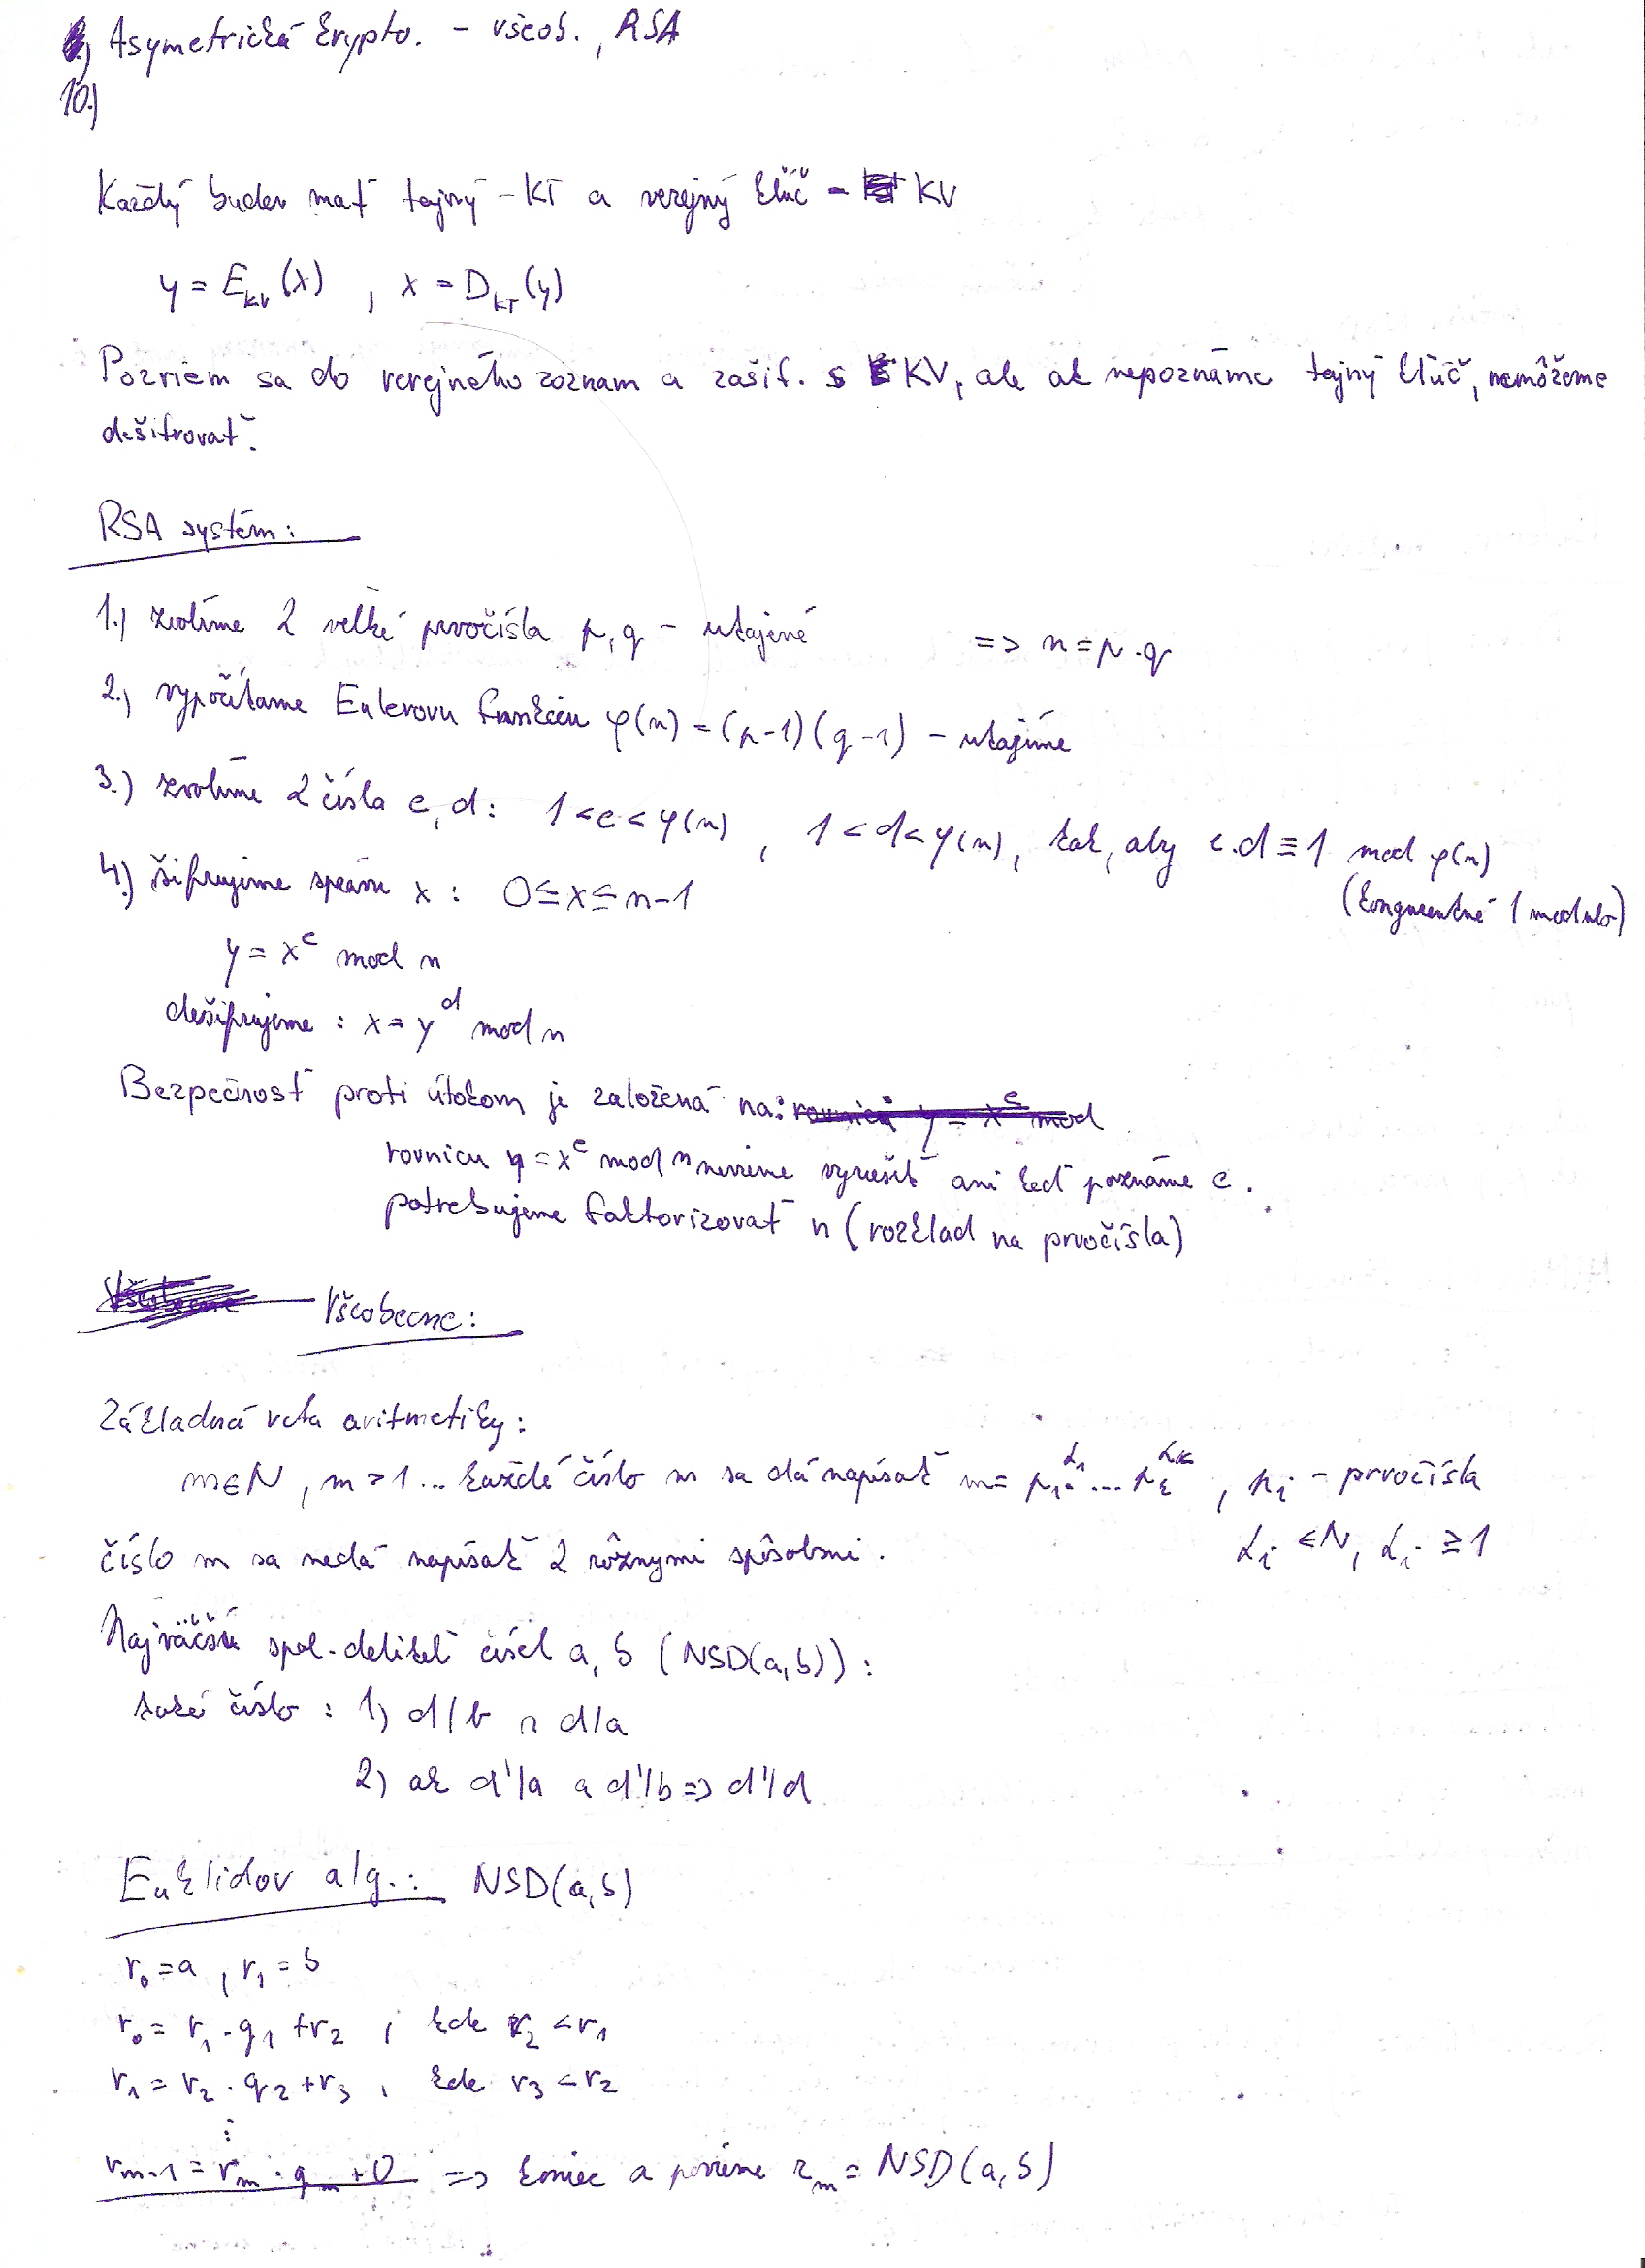 Asymetrická krypto. - všeob., RSA
10.)
Každý budem mať tajný - KT a verejný kľúč - KV
y = E_KV (x) , x = D_KT (y)
Pozriem sa do verejného zoznam a zašif. s KV, ale ak nepoznáme tajný kľúč, nemôžeme
dešifrovať.
RSA systém:
1.) zvolíme 2 veľké prvočísla p, q - utajené => n = p . q
2.) vypočítame Eulerovu funkciu φ(n) = (p-1)(q-1) - utajíme
3.) zvolíme 2 čísla e, d: 1 < e < φ(n) , 1 < d < φ(n), tak, aby e.d ≡ 1 mod φ(n)
(kongruentné 1 modulo)
4.) šifrujeme správu x : 0 ≤ x ≤ n-1
y = x^e mod n
dešifrujeme : x = y^d mod n
Bezpečnosť proti útokom je založená na: rovnicu y = x^e mod
rovnicu y = x^e mod n nevieme vyriešiť ani keď poznáme e .
potrebujeme faktorizovať n (rozklad na prvočísla)
Všeobecne Všeobecne:
Základná veta aritmetiky:
m ∈ N , m > 1 ... každé číslo m sa dá napísať m = p_1^α_1 . ... p_k^α_k , p_i - prvočísla
číslo m sa nedá napísať 2 rôznymi spôsobmi . α_i ∈ N, α_i ≥ 1
Najväčší spol. deliteľ čísel a, b (NSD(a,b)) :
také číslo : 1) d/b a d/a
2) ak d'/a a d'/b => d'/d
Euklidov alg.: NSD(a,b)
r_0 = a , r_1 = b
r_0 = r_1 . q_1 + r_2 , kde r_2 < r_1
r_1 = r_2 . q_2 + r_3 , kde r_3 < r_2
⋮
r_m-1 = r_m . q_m + 0 => koniec a povieme r_m = NSD(a,b)